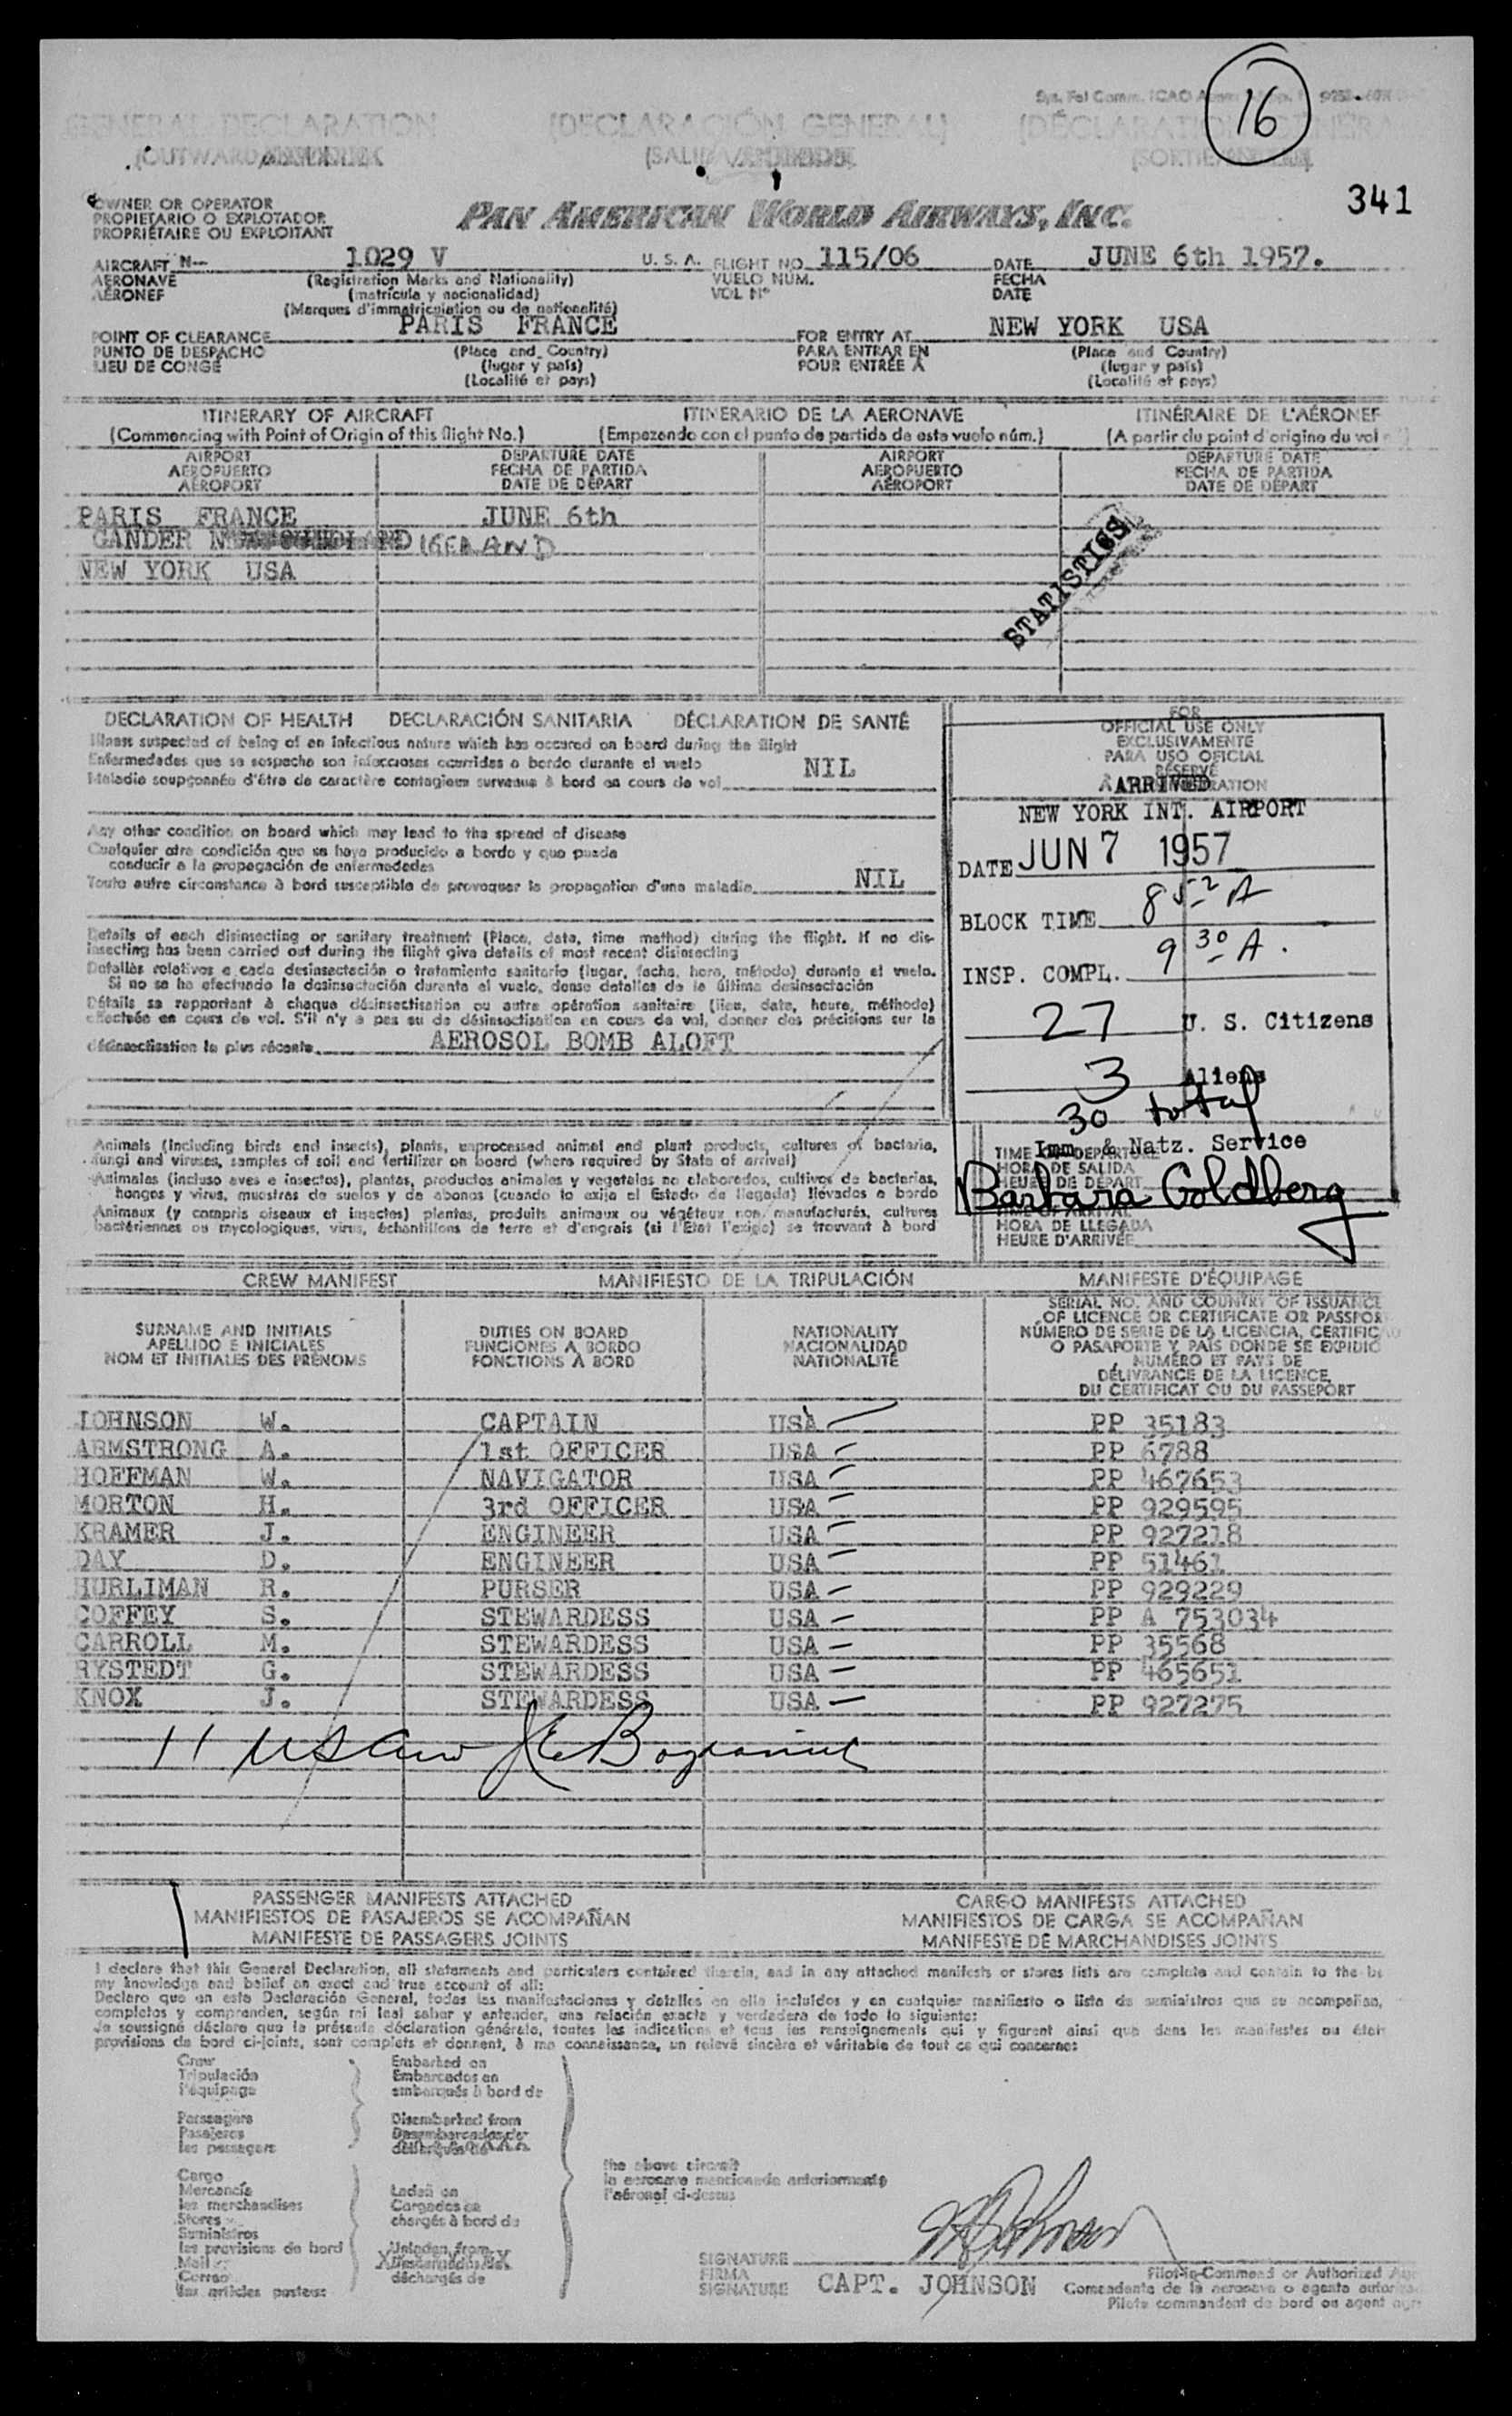 16
341
GENERAL DECLARATION (DECLARACIÓN GENERAL)
(OUTWARD (SALIDA (SORTIE
OWNER OR OPERATOR
PROPIETARIO O EXPLOTADOR
PROPRIÉTAIRE OU EXPLOITANT
PAN AMERICAN WORLD AIRWAYS, INC.
AIRCRAFT N-- 1029 V U. S. A. FLIGHT NO. 115/06 DATE JUNE 6th 1957.
AERONAVE (Registration Marks and Nationality) VUELO NUM. FECHA
AÉRONEF (matrícula y nacionalidad) VOL N° DATE
(Marques d'immatriculation ou de nationalité)
POINT OF CLEARANCE PARIS FRANCE FOR ENTRY AT NEW YORK USA
PUNTO DE DESPACHO (Place and Country) PARA ENTRAR EN (Place and Country)
LIEU DE CONGÉ (lugar y país) POUR ENTRÉE À (lugar y país)
(Localité et pays) (Localité et pays)
ITINERARY OF AIRCRAFT ITINERARIO DE LA AERONAVE ITINÉRAIRE DE L'AÉRONEF
(Commencing with Point of Origin of this flight No.) (Empezando con el punto de partida de este vuelo núm.) (A partir du point d'origine du vol
AIRPORT DEPARTURE DATE AIRPORT DEPARTURE DATE
AEROPUERTO FECHA DE PARTIDA AEROPUERTO FECHA DE PARTIDA
AÉROPORT DATE DE DÉPART AÉROPORT DATE DE DÉPART
PARIS FRANCE JUNE 6th
GANDER
NEW YORK USA
STATISTICS
DECLARATION OF HEALTH DECLARACIÓN SANITARIA DÉCLARATION DE SANTÉ
Illness suspected of being of an infectious nature which has occured on board during the flight
Enfermedades que se sospecha son infecciosas ocurridas a bordo durante el vuelo
Maladie soupçonnée d'être de caractère contagieux survenue à bord en cours de vol NIL
Any other condition on board which may lead to the spread of disease
Cualquier otra condición que se haya producido a bordo y que pueda
conducir a la propagación de enfermedades
Toute autre circonstance à bord susceptible de provoquer la propagation d'une maladie NIL
Details of each disinsecting or sanitary treatment (Place, date, time method) during the flight. If no dis-
insecting has been carried out during the flight give details of most recent disinsecting
Detalles relativos a cada desinsectación o tratamiento sanitario (lugar, fecha, hora, método) durante el vuelo.
Si no se ha efectuado la desinsectación durante el vuelo, dense detalles de la última desinsectación
Détails se rapportant à chaque désinsectisation ou autre opération sanitaire (lieu, date, heure, méthode)
effectuée en cours de vol. S'il n'y a pas eu de désinsectisation en cours de vol, donner des précisions sur la
désinsectisation la plus récente AEROSOL BOMB ALOFT
Animals (including birds and insects), plants, unprocessed animal and plant products, cultures of bacteria,
fungi and viruses, samples of soil and fertilizer on board (where required by State of arrival)
Animales (incluso aves e insectos), plantas, productos animales y vegetales no elaborados, cultivos de bacterias,
hongos y virus, muestras de suelos y de abonos (cuando lo exija el Estado de llegada) llevados a bordo
Animaux (y compris oiseaux et insectes) plantes, produits animaux ou végétaux non manufacturés, cultures
bactériennes ou mycologiques, virus, échantillons de terre et d'engrais (si l'État l'exige) se trouvant à bord
FOR
OFFICIAL USE ONLY
EXCLUSIVAMENTE
PARA USO OFICIAL
RÉSERVÉ
ARRIVED
NEW YORK INT. AIRPORT
DATE JUN 7 1957
BLOCK TIME 8 52 A
INSP. COMPL. 9 30 A.
27 U. S. Citizens
3 Aliens
30 total
Imm & Natz. Service
Barbara Goldberg
TIME OF DEPARTURE
HORA DE SALIDA
HEURE DE DÉPART
TIME OF ARRIVAL
HORA DE LLEGADA
HEURE D'ARRIVÉE
CREW MANIFEST MANIFIESTO DE LA TRIPULACIÓN MANIFESTE D'ÉQUIPAGE
SURNAME AND INITIALS DUTIES ON BOARD NATIONALITY
APELLIDO E INICIALES FUNCIONES A BORDO NACIONALIDAD
NOM ET INITIALES DES PRÉNOMS FONCTIONS À BORD NATIONALITÉ
SERIAL NO. AND COUNTRY OF ISSUANCE
OF LICENCE OR CERTIFICATE OR PASSPOR
NÚMERO DE SERIE DE LA LICENCIA, CERTIFIC
O PASAPORTE Y PAÍS DONDE SE EXPIDIÓ
NUMÉRO ET PAYS DE
DÉLIVRANCE DE LA LICENCE,
DU CERTIFICAT OU DU PASSEPORT
JOHNSON W. CAPTAIN USA PP 35183
ARMSTRONG A. 1st OFFICER USA PP 6788
HOFFMAN W. NAVIGATOR USA PP 467653
MORTON H. 3rd OFFICER USA PP 929595
KRAMER J. ENGINEER USA PP 927218
DAY D. ENGINEER USA PP 51461
HURLIMAN R. PURSER USA PP 929229
COFFEY S. STEWARDESS USA PP A 753034
CARROLL M. STEWARDESS USA PP 35568
RYSTEDT G. STEWARDESS USA PP 465651
KNOX J. STEWARDESS USA PP 927275
11
PASSENGER MANIFESTS ATTACHED CARGO MANIFESTS ATTACHED
MANIFIESTOS DE PASAJEROS SE ACOMPAÑAN MANIFIESTOS DE CARGA SE ACOMPAÑAN
MANIFESTE DE PASSAGERS JOINTS MANIFESTE DE MARCHANDISES JOINTS
I declare that this General Declaration, all statements and particulars contained therein, and in any attached manifests or stores lists are complete and contain to the be
my knowledge and belief an exact and true account of all:
Declaro que en esta Declaración General, todas las manifestaciones y detalles en ella incluidos y en cualquier manifiesto o lista de suministros que se acompañan,
completos y comprenden, según mi leal saber y entender, una relación exacta y verdadera de todo lo siguiente:
Je soussigné déclare que la présente déclaration générale, toutes les indications et tous les renseignements qui y figurent ainsi que dans les manifestes ou états
provisions de bord ci-joints, sont complets et donnent, à ma connaissance, un relevé sincère et véritable de tout ce qui concerne:
Crew Embarked on
Tripulación Embarcados en
l'équipage embarqués à bord de
Passengers Disembarked from
Pasajeros Desembarcados de
les passagers
Cargo
Mercancía Laden on
les marchandises Cargados en
Stores chargés à bord de
Suministros
les provisions de bord Unladen from
Mail
Correo déchargés de
les articles postaux
the above aircraft
la aeronave mencionada anteriormente
l'aéronef ci-dessus
SIGNATURE
FIRMA
SIGNATURE CAPT. JOHNSON
Pilot-in-Command or Authorized
Comandante de la aeronave o agente
Pilote commandant de bord ou agent